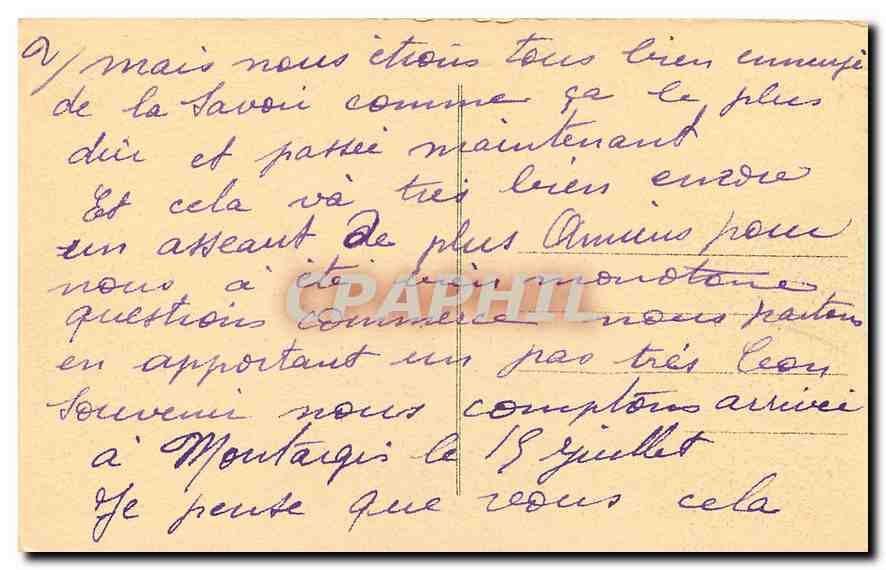 2/ mais nous étions tous bien ennuyé
de la Savoir comme ça le plus
dur et passée maintenant
Et cela và très bien encore
un asseaut de plus Amiens pour
nous à été bien monotone
questions commerce nous partons
en apportant un pas très bon
Souvenir nous comptons arrivée
à Montargis le 15 juillet
Je pense que vous cela
CPAPHIL